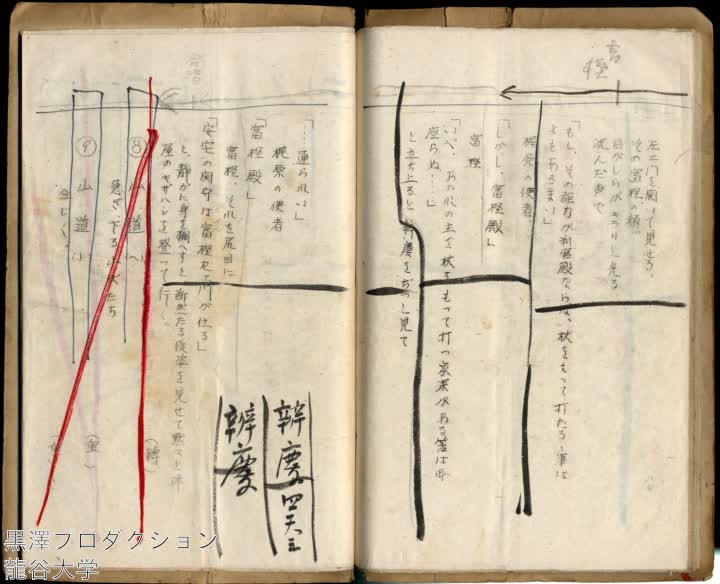 富樫
左エ門を開いて見せる。
その富樫の横
目がしらがキラリと光る
沈んだ声で
「もし、その強力が判官殿ならば、杖をもって打たるゝ事は
よもあるまい」
梶原の使者
「しかし、富樫殿」
富樫
「いや、あの人の主を杖をもって打つ家来がある筈は
座らぬ……」
と立ち上ると、弁慶をぢっと見て
「……通られい」
梶原の使者
「富樫殿」
富樫、それを尻目に
「安宅の関守は富樫セヱ川が仕る」
と、静かに身を飜へすと断然たる後姿を見せて黙々と
屋のキザハシを登って行く。
辨慶四天王
辨慶
⑧ 山道(へ)
急ぎ下る山伏たち
(轉)
⑨ 山道(ト)
同じく。
黒澤プロダクション
龍谷大学